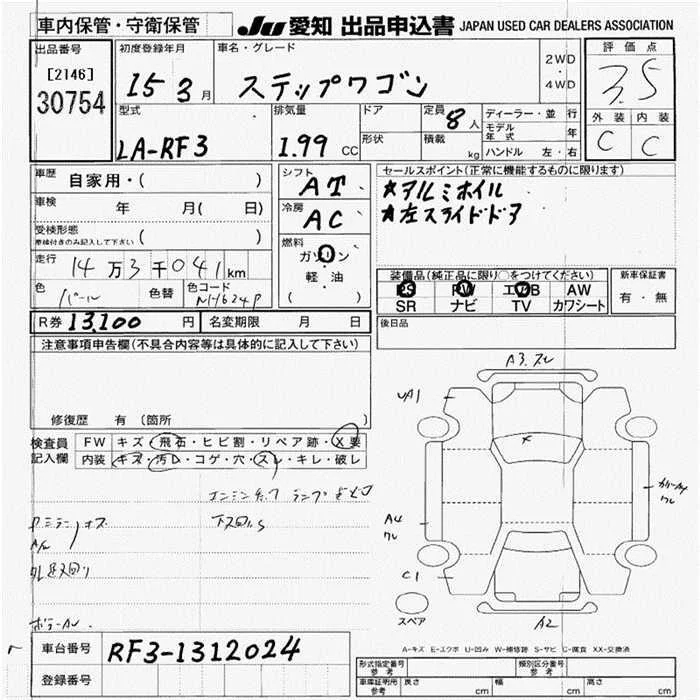 車内保管・守衛保管
JU 愛知 出品申込書 JAPAN USED CAR DEALERS ASSOCIATION
出品番号
[2146]
30754
初度登録年月
15 3月
車名・グレード
ステップワゴン
2WD
・
4WD
評価点
3.5
外装 内装
C C
型式
LA-RF3
排気量
1.99 CC
ドア
形状
定員 8人
積載 kg
ディーラー・並行
モデル年式 年
ハンドル 左・右
車歴 自家用・( )
車検 年 月( 日)
受検形態
車検付きのみ記入して下さい ( )
走行 14万3千041km
色 パール 色替 色コード NH624P
シフト AT
冷房 AC
燃料
ガソリン
・
軽・油
( )
セールスポイント(正常に機能するものに限ります)
★アルミホイル
★左スライドドア
装備品(純正品に限り○をつけてください)
PS PW エアB AW
SR ナビ TV カワシート
新車保証書
有・無
後日品
R券 13,100円 名変期限 月 日
注意事項申告欄(不具合内容等は具体的に記入して下さい)
修復歴 有 (箇所 )
検査員記入欄
FW キズ・飛石・ヒビ割・リペア跡・X要
内装 キズ・汚レ・コゲ・穴・スレ・キレ・破レ
エンジンチェックランプ
下回りS
A3.スレ
UA1
A4
ワレ
C1
A2
ワレ
スペア
A-キズ E-エクボ U-凹み W-補修跡 S-サビ C-腐食 XX-交換済
車台番号 RF3-1312024
登録番号
形式指定番号 参考
類別区分番号 参考
車庫証明用 参考 長さ cm 幅 cm 高さ cm